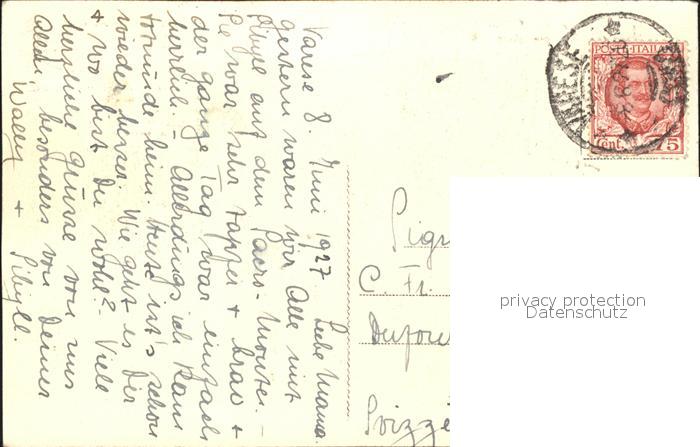 Varese 8. Juni 1927. Liebe Mama.
gestern waren wir Alle mit
auf dem Sacro-Monte. -
Sie war sehr tapfer + brav +
der ganze Tag war einfach
herrlich. - Allerdings ich kam
heim. Heute ist's schon
wieder besser. Wie geht es Dir
+ wo bist Du wohl? - Viele
herzliche Grüsse von uns
Allen, besonders von Deiner
Wally + Sibylle.
POSTE ITALIANE
Cent. 75
VARESE
C. Fr.
Dufour
Svizze
privacy protection
Datenschutz